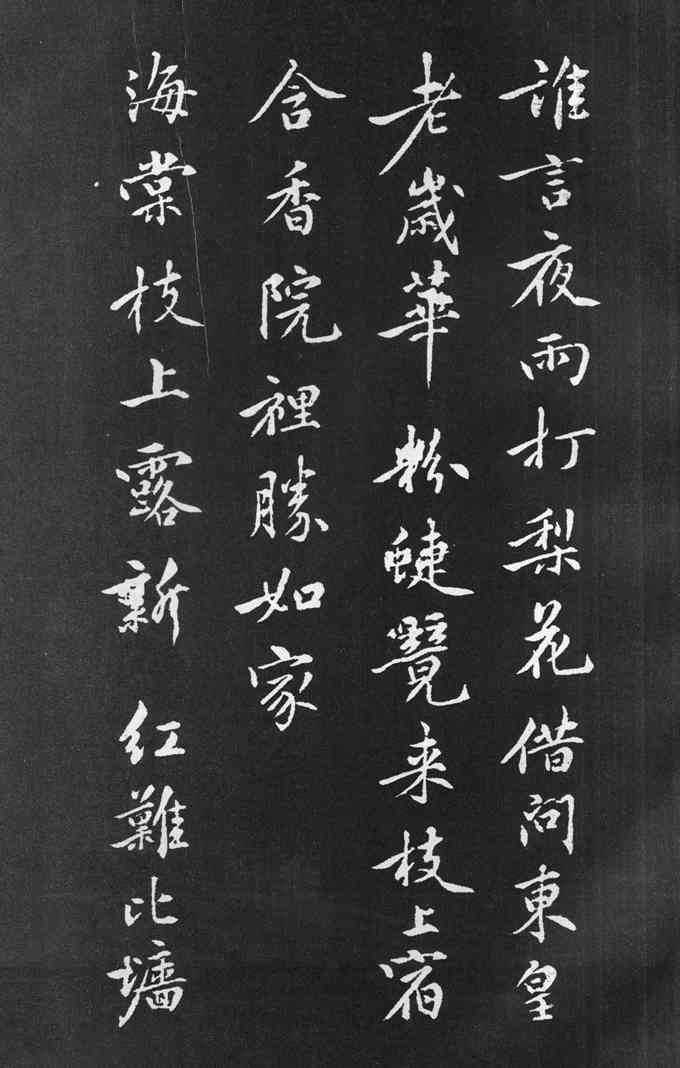 誰言夜雨打梨花借問東皇
老歲華 粉蜨覽来枝上宿
含香院裡勝如家
海棠枝上露新 紅難比墻